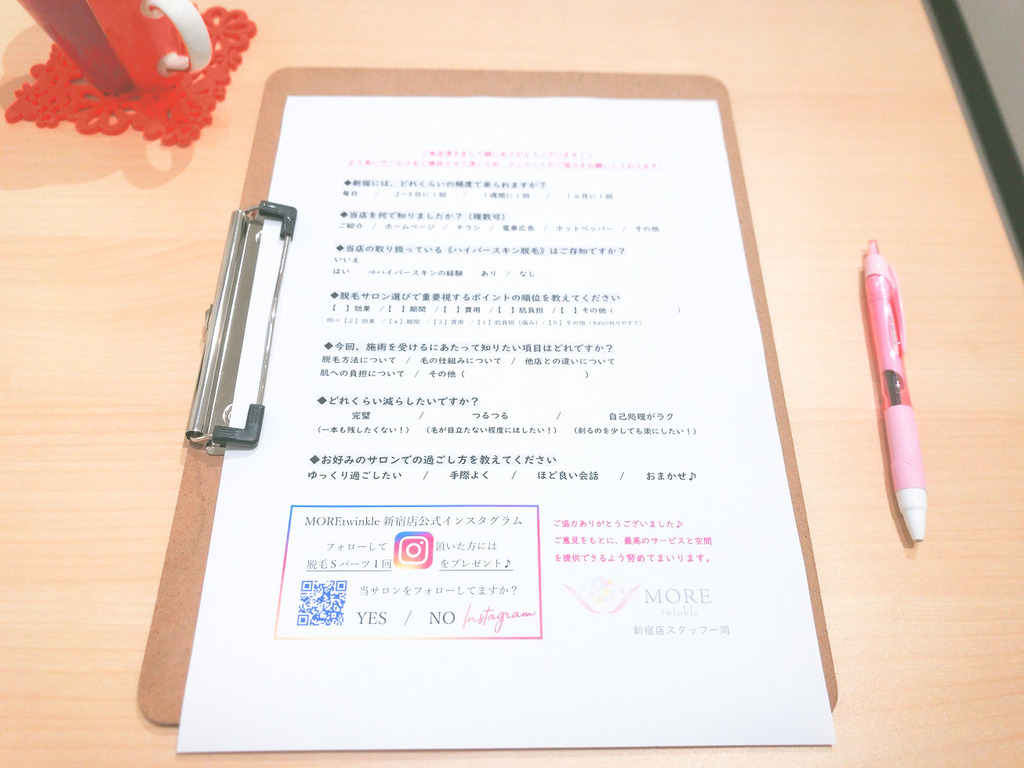 ご来店頂きまして誠にありがとうございます！！
より良いサービスをご提供させて頂くため、アンケートのご協力をお願いしております。
◆新宿には、どれくらいの頻度で来られますか？
毎日 / 2~3日に1回 / 1週間に1回 / 1ヵ月に1回
◆当店を何で知りましたか？（複数可）
ご紹介 / ホームページ / チラシ / 電車広告 / ホットペッパー / その他
◆当店の取り扱っている《ハイパースキン脱毛》はご存知ですか？
いいえ
はい ⇒ハイパースキンの経験 あり / なし
◆脱毛サロン選びで重要視するポイントの順位を教えてください
【 】効果 /【 】期間 /【 】費用 /【 】肌負担 /【 】その他（ ）
例⇒【2】効果 /【4】期間 /【3】費用 /【1】肌負担（痛み）/【5】その他（予約の取りやすさ）
◆今回、施術を受けるにあたって知りたい項目はどれですか？
脱毛方法について / 毛の仕組みについて / 他店との違いについて
肌への負担について / その他（ ）
◆どれくらい減らしたいですか？
完璧 / つるつる / 自己処理がラク
（一本も残したくない！） （毛が目立たない程度にはしたい！） （剃るのを少しでも楽にしたい！）
◆お好みのサロンでの過ごし方を教えてください
ゆっくり過ごしたい / 手際よく / ほど良い会話 / おまかせ♪
MOREtwinkle 新宿店公式インスタグラム
フォローして 頂いた方には
脱毛Sパーツ1回 をプレゼント♪
当サロンをフォローしてますか？
YES / NO Instagram
ご協力ありがとうございました♪
ご意見をもとに、最高のサービスと空間
を提供できるよう努めてまいります。
MORE
twinkle
新宿店スタッフ一同